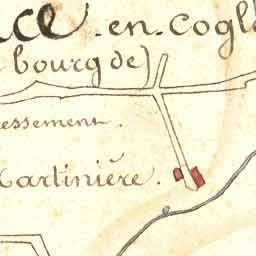 ce-en-Cogl
bourg de)
essement.
artinière.